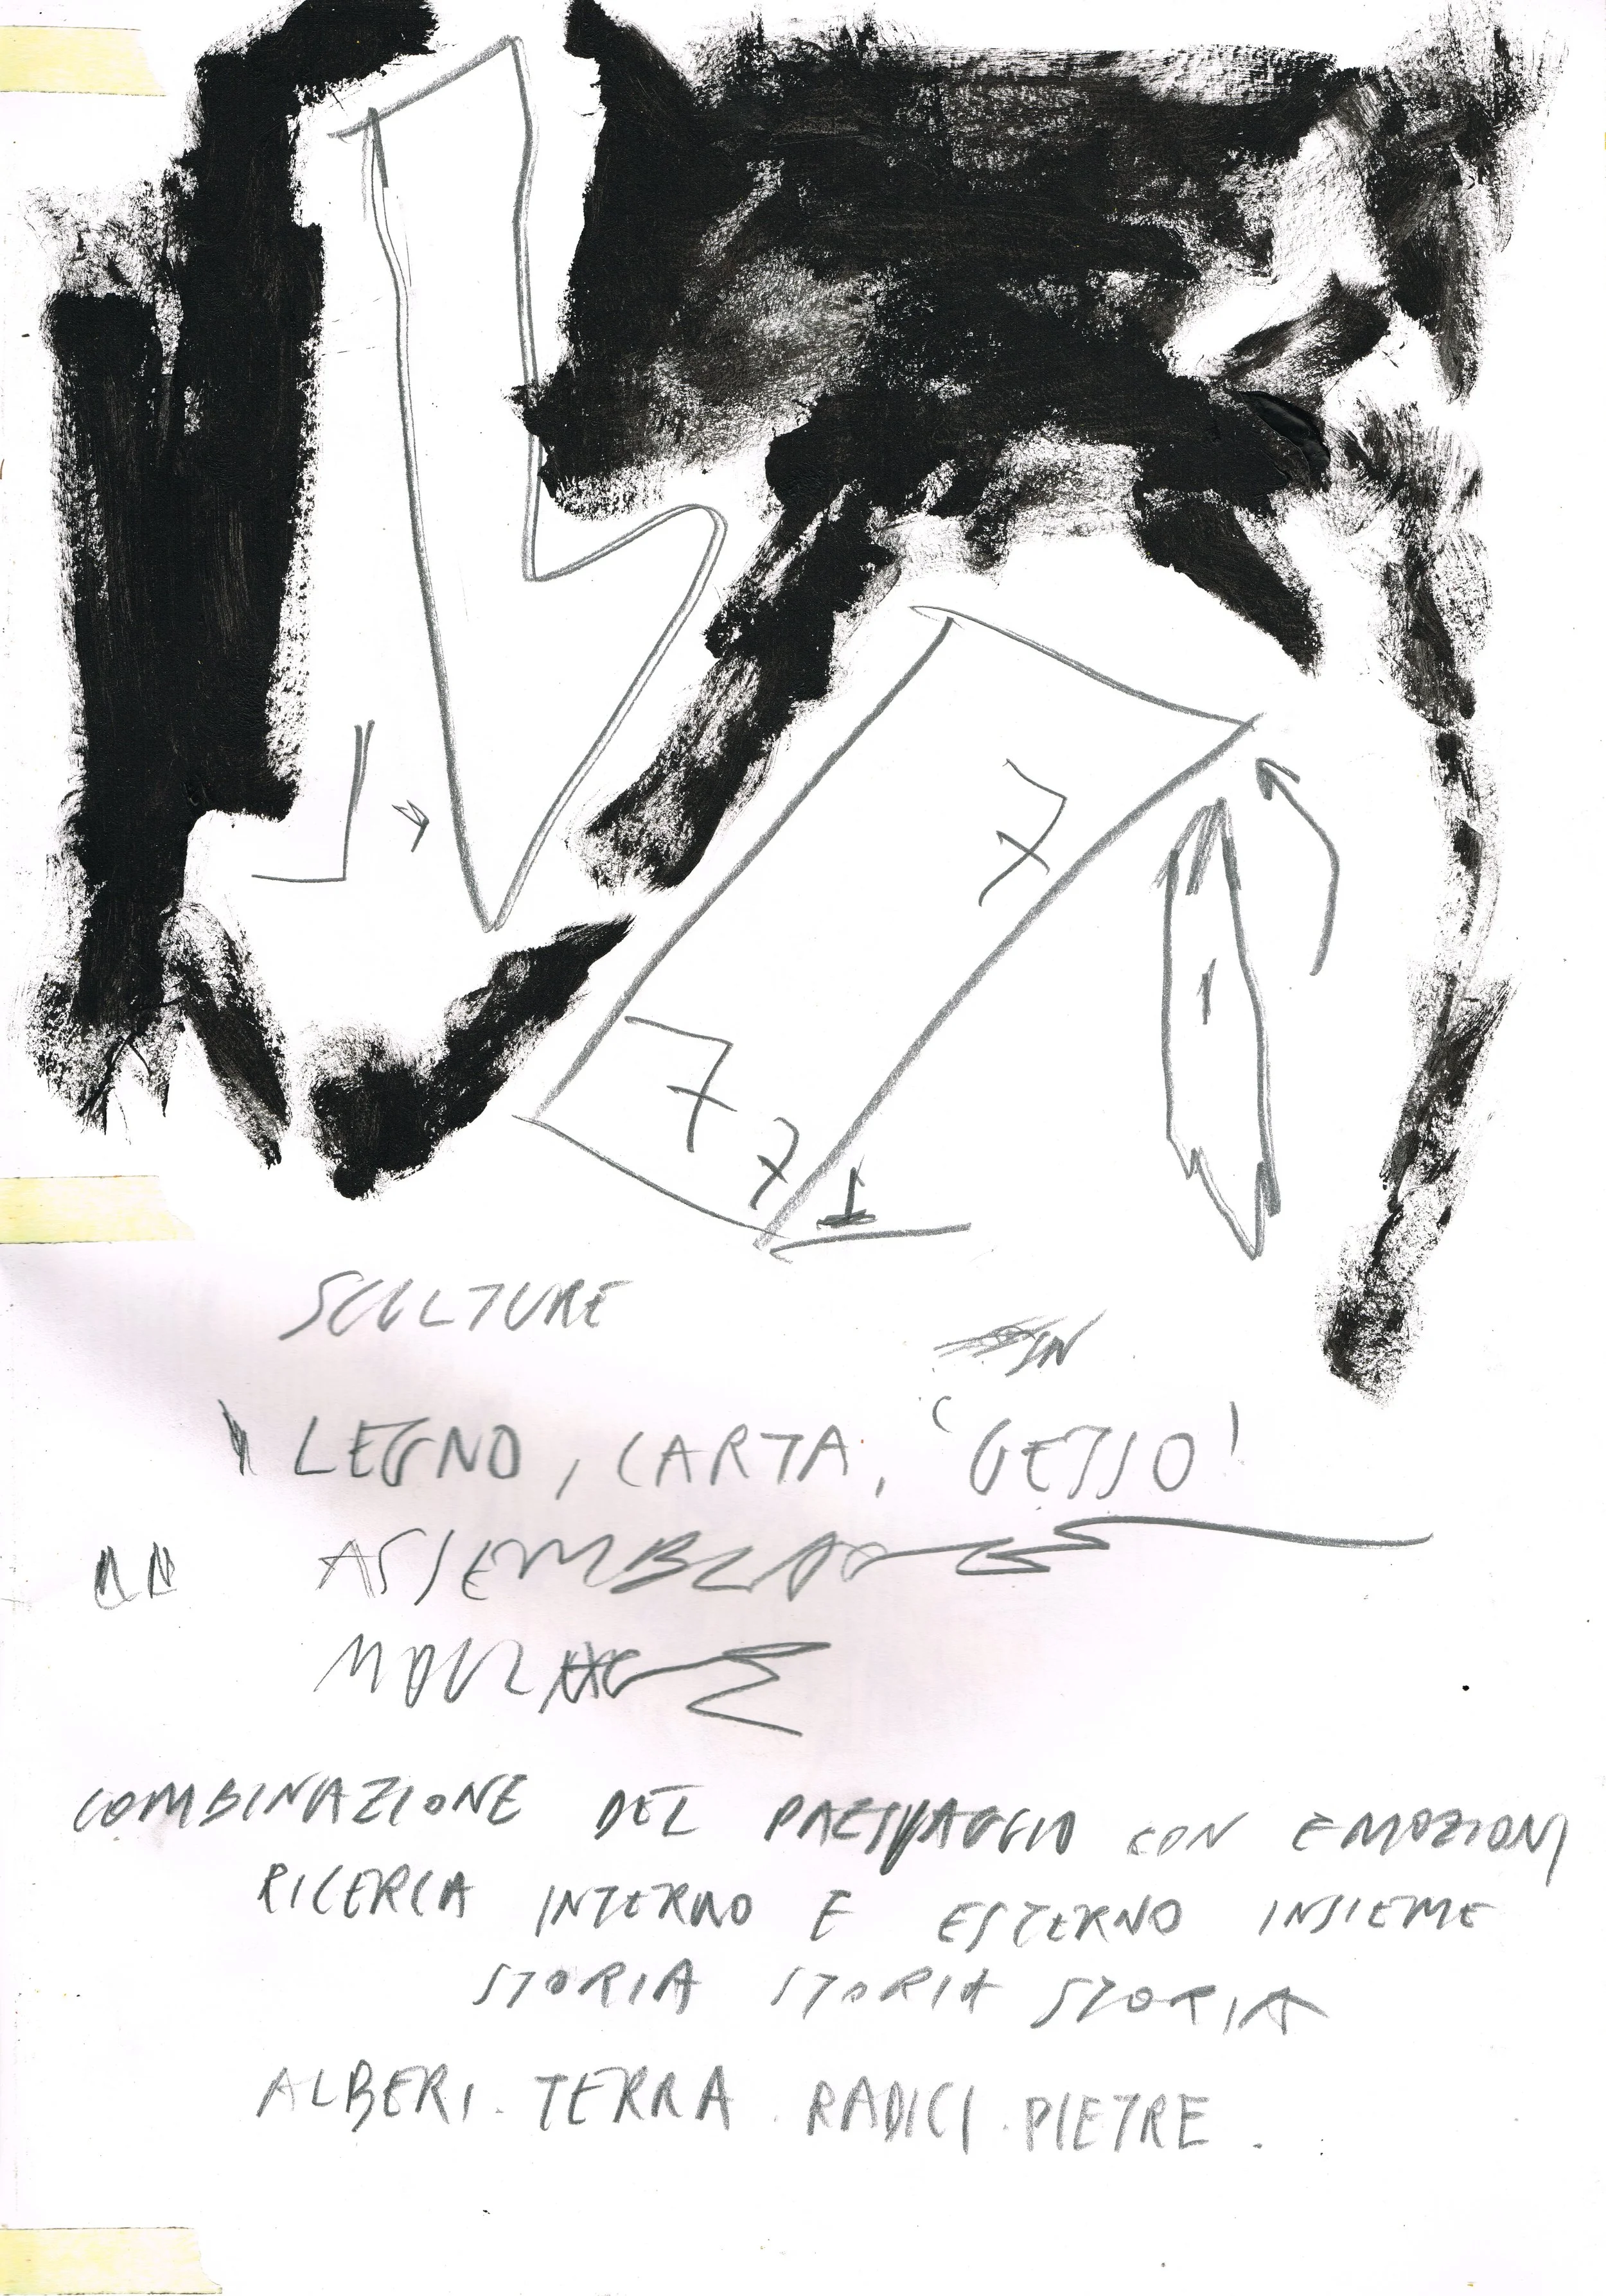 7
1
7
7 1
SCULTURE
IN
LEGNO, CARTA, "GESSO"
COMBINAZIONE DEL PAESAGGIO CON EMOZIONI
RICERCA INTERNO E ESTERNO INSIEME
STORIA STORIA STORIA
ALBERI. TERRA. RADICI. PIETRE.